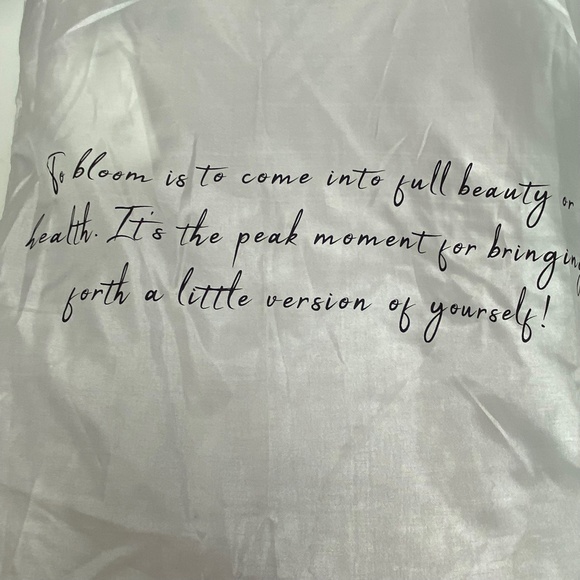 To bloom is to come into full beauty or
health. It's the peak moment for bringing
forth a little version of yourself!